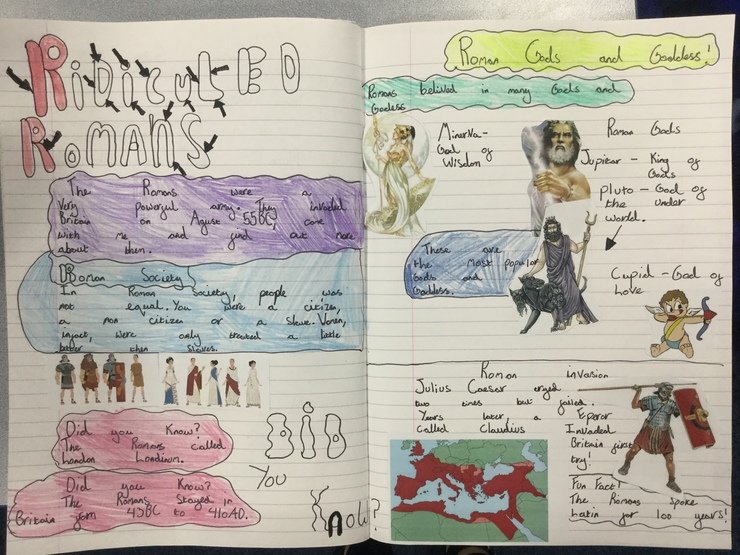 RIDICULED
ROMANS
The Romans were a
Very powerful army. They invaded
Britain on Agust 55BC, come
with me and find out more
about them.
Roman Society
In Roman Society, people was
not equal. You were a citizen,
a non citizen or a slave. Women,
infact, were only treated a little
better then slaves.
Did you Know?
The Romans called
London Londinum.
Did you Know?
The Romans Stayed in
Britain from 43BC to 410AD.
DID
You
Know?
Roman Gods and Goddess!
Romans belived in many Gods and
Godess
Minerva-
God of
Wisdom
Roman Gods
Jupitar - King of
Gods
pluto - God of
the under
world.
These are
the most popular
Gods and
Goddess.
Cupid - God of
Love
Roman invasion
Julius Caesar
two times but failed.
Years later, a Eperor
called Claudius Invaded
Britain first
try!
Fun Fact!
The Romans spoke
Latin for 100 years!